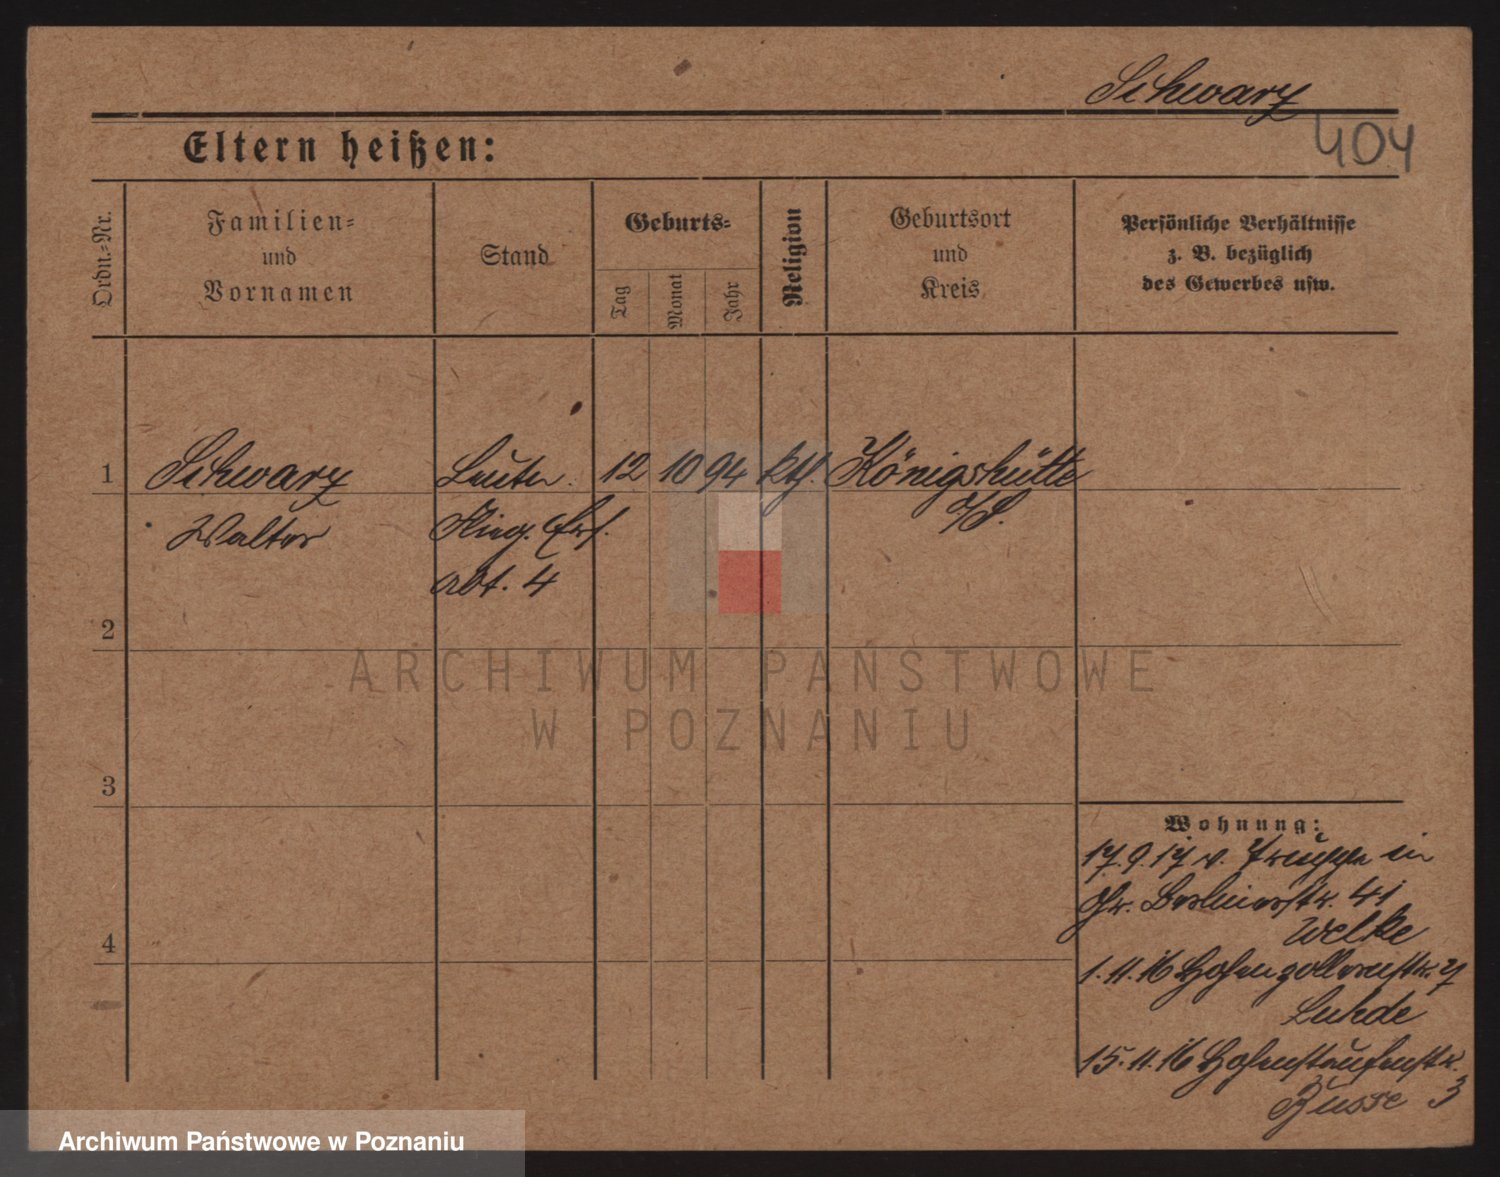 Schwarz
404
Eltern heißen:
Ordn.-Nr.
Familien-
und
Vornamen
Stand
Geburts-
Tag
Monat
Jahr
Religion
Geburtsort
und
Kreis
Persönliche Verhältnisse
z. B. bezüglich
des Gewerbes usw.
1 Schwarz Leutn. 12 10 94 kth. Königshütte
Walter Flieg. Ers. O/S.
abt. 4
2
3
4
Wohnung:
17.9.17 v. Truppe in
Gr. Berlinerstr. 41
Welke
1.11.16 Hohenzollernstr. 7
Luhde
15.11.16 Hohenstaufenstr.
Busse 3
ARCHIWUM PAŃSTWOWE
W POZNANIU
Archiwum Państwowe w Poznaniu